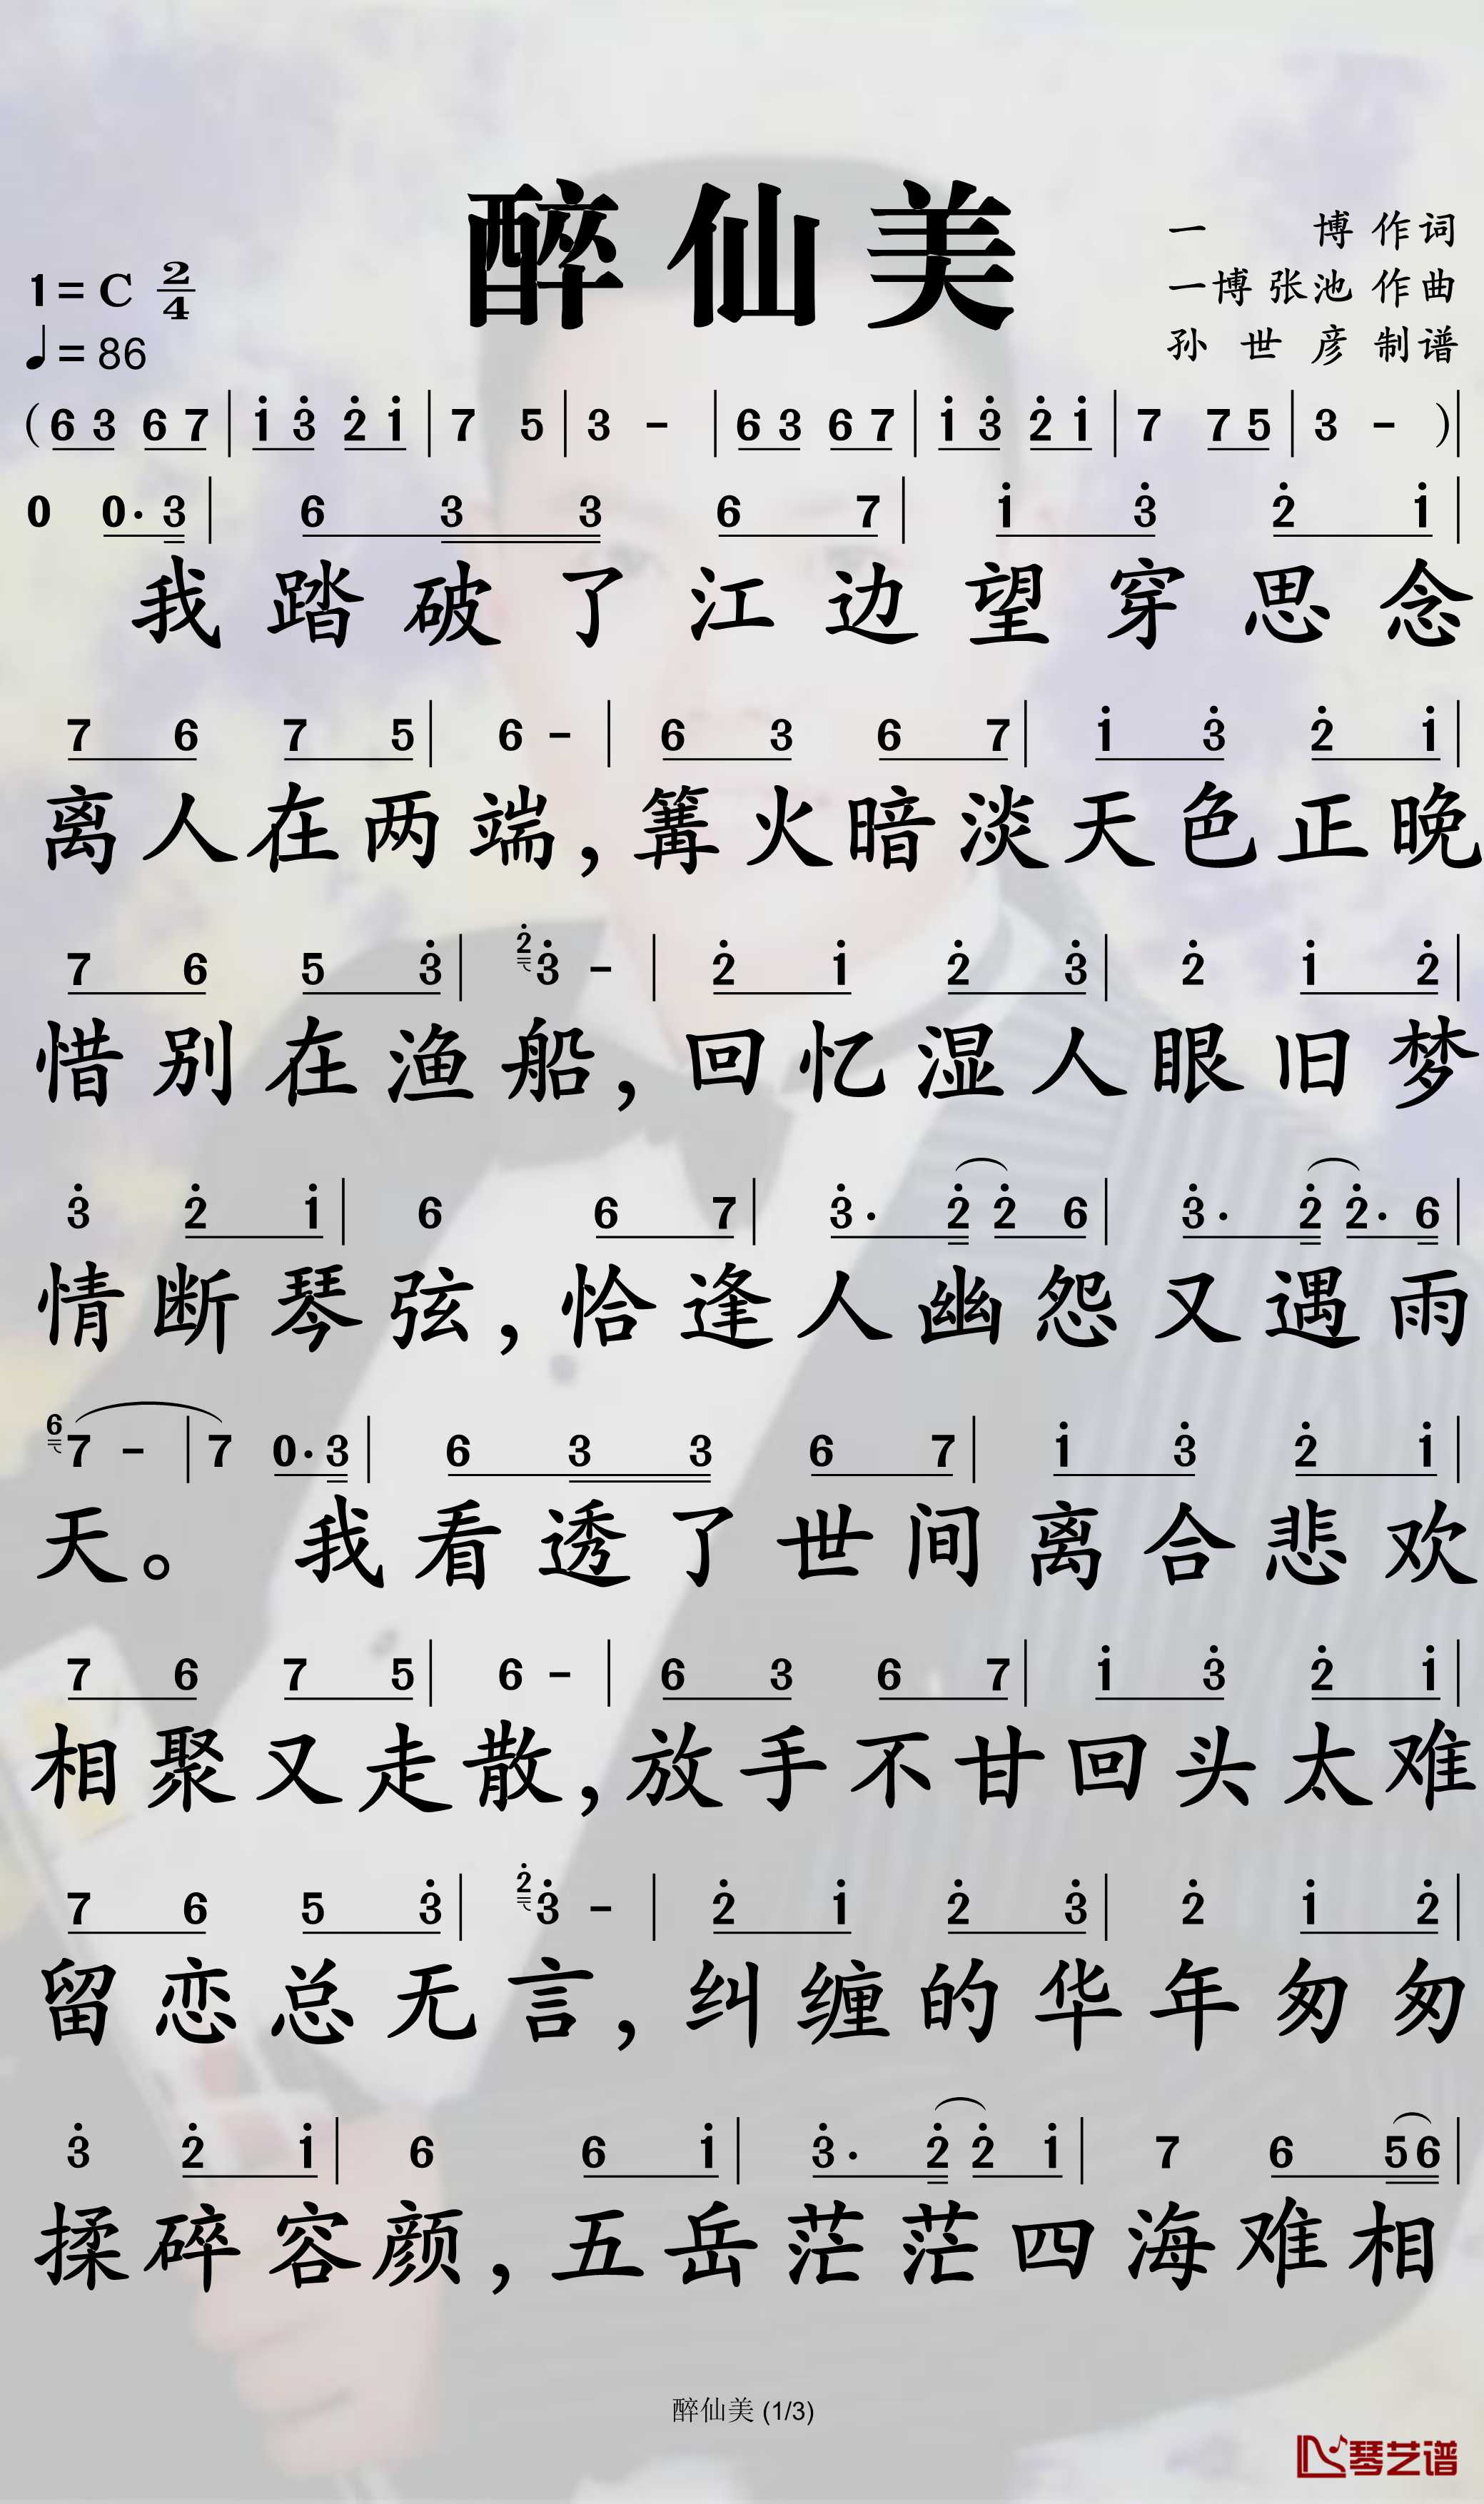 醉仙美
一 博 作词
一博 张池 作曲
孙 世 彦 制谱
1=C 2/4
♩=86
( 6 3 6 7 | 1̇ 3̇ 2̇ 1̇ | 7 5 | 3 - | 6 3 6 7 | 1̇ 3̇ 2̇ 1̇ | 7 7 5 | 3 - ) |
0 0· 3 | 6 3 3 6 7 | 1̇ 3̇ 2̇ 1̇ |
我踏破了江边望穿思念
7 6 7 5 | 6 - | 6 3 6 7 | 1̇ 3̇ 2̇ 1̇ |
离人在两端，篝火暗淡天色正晚
7 6 5 3̇ | 2̇ 3̇ - | 2̇ 1̇ 2̇ 3̇ | 2̇ 1̇ 2̇ |
惜别在渔船，回忆湿人眼旧梦
3̇ 2̇ 1̇ | 6 6 7 | 3̇· 2̇ 2̇ 6 | 3̇· 2̇ 2̇· 6 |
情断琴弦，恰逢人幽怨又遇雨
6 7 - | 7 0· 3 | 6 3 3 6 7 | 1̇ 3̇ 2̇ 1̇ |
天。 我看透了世间离合悲欢
7 6 7 5 | 6 - | 6 3 6 7 | 1̇ 3̇ 2̇ 1̇ |
相聚又走散，放手不甘回头太难
7 6 5 3̇ | 2̇ 3̇ - | 2̇ 1̇ 2̇ 3̇ | 2̇ 1̇ 2̇ |
留恋总无言，纠缠的华年匆匆
3̇ 2̇ 1̇ | 6 6 1̇ | 3̇· 2̇ 2̇ 1̇ | 7 6 5 6 |
揉碎容颜，五岳茫茫四海难相
醉仙美 (1/3)
琴艺谱